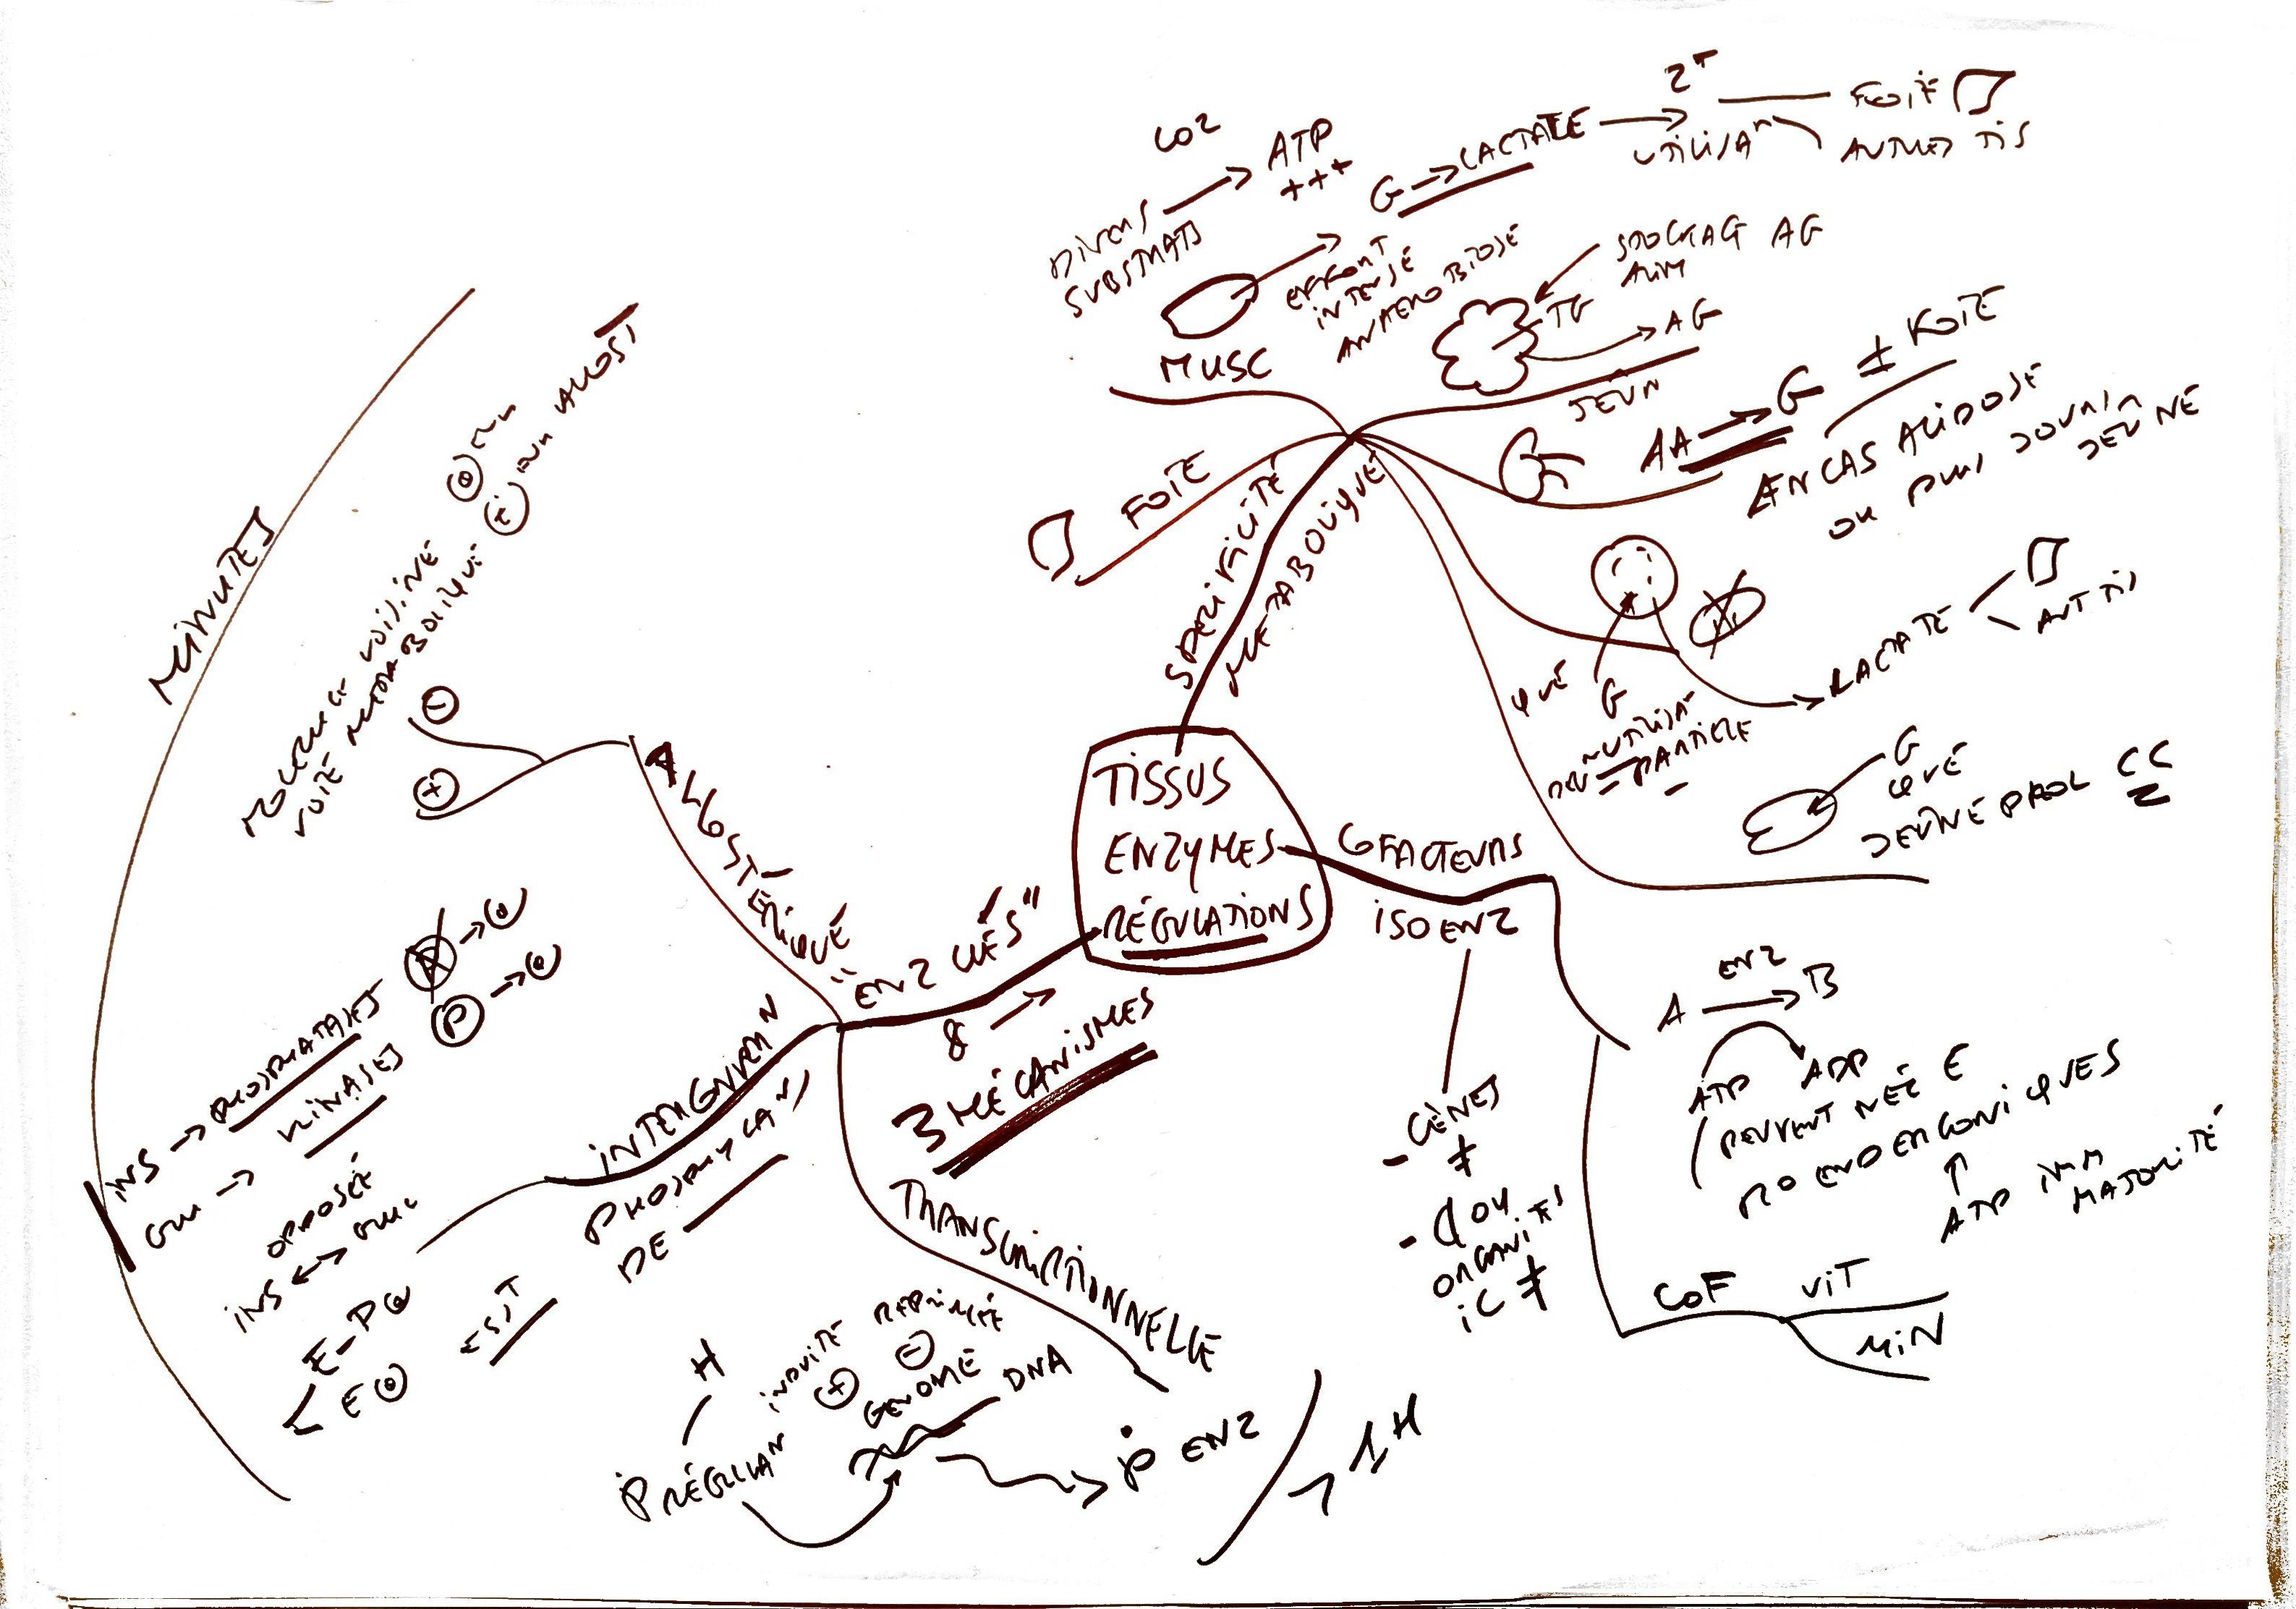 TISSUS
ENZYMES
RÉGULATIONS
SPÉCIFICITÉ
MÉTABOLIQUE
FOIE
MUSC
DIVERS
SUBSTRATS
CO2
ATP
+++
EFFORT
INTENSE
ANAEROBIOSE
G → LACTATE →
UTILISAⁿ
FOIE
AUTRES TIS
STOCKAG AG
ALIM
TG
AG
JEUN
AA → G
± FOIE
EN CAS ACIDOSE
OU
JEÛNE
G
LACTATE
AUT TIS
G
JEÛNE PROL CC
6 FACTEURS
ISOENZ
- GÈNES
≠
- OU
ORGANITES
IC ≠
ENZ
A → B
ATP ADP
PEUVENT NÉC E
RO ENDERGONIQUES
↑
ATP
MAJORITÉ
COF
VIT
MIN
"ENZ CLÉS"
& →
3 MÉCANISMES
ALLOSTÉRIQUE
⊖
⊕
MOLÉCULE VOISINE
VOIE MÉTABOLIQUE
MINUTES
INTERCONVERⁿ
PHOSPHORYLAⁿ
DE
INS → PHOSPHATASES
→ KINASES
Ⓟ →
OPPOSÉE
INS ↔
E-P
E
TRANSCRIPTIONNELLE
H
INDUITE RÉPRIMÉE
⊕ ⊖
GENOME
DNA
RÉGULAⁿ
ENZ
1H